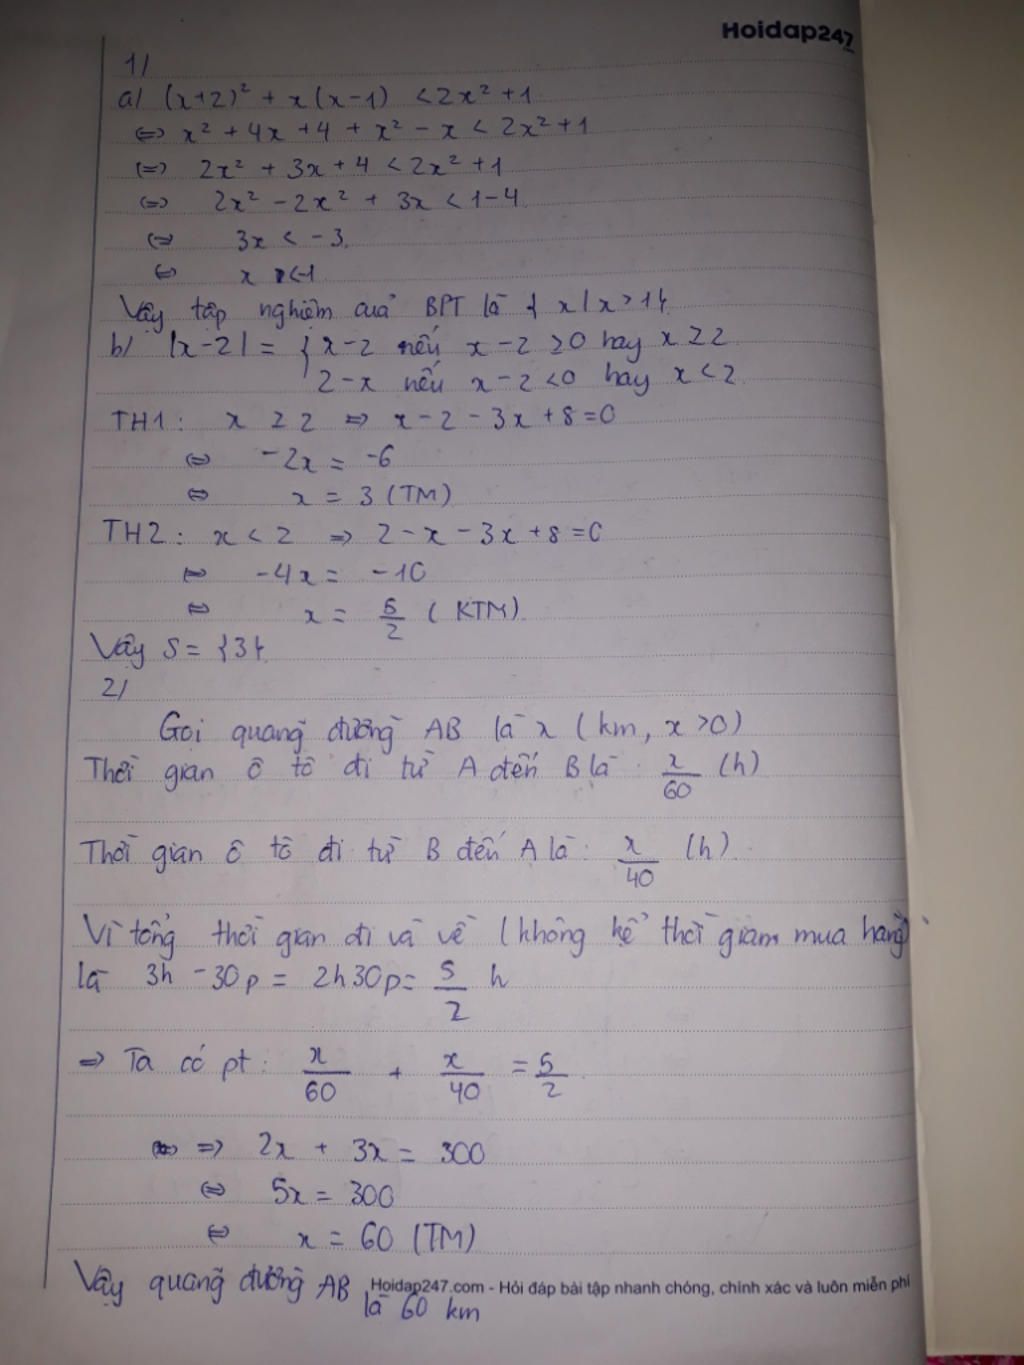 Hoidap247
.com
1/
a/ (x+2)² + x(x-1) < 2x² + 1
<=> x² + 4x + 4 + x² - x < 2x² + 1
(=) 2x² + 3x + 4 < 2x² + 1
(=) 2x² - 2x² + 3x < 1-4
(=) 3x < -3
<=> x <-1
Vậy tập nghiệm của BPT là { x | x > 1}
b/ |x-2| = { x-2 nếu x-2 ≥0 hay x ≥ 2
2-x nếu x-2 <0 hay x < 2
TH1: x ≥ 2 => x-2-3x+8=0
<=> -2x = -6
<=> x = 3 (TM)
TH2: x < 2 => 2-x-3x+8=0
<=> -4x = -10
<=> x = 5/2 ( KTM)
Vậy S = {3}
2/
Gọi quãng đường AB là x ( km, x >0)
Thời gian ô tô đi từ A đến B là x/60 (h)
Thời gian ô tô đi từ B đến A là: x/40 (h)
Vì tổng thời gian đi và về (không kể thời giam mua hàng)
là 3h - 30p = 2h30p = 5/2 h
=> Ta có pt: x/60 + x/40 = 5/2
=> 2x + 3x = 300
<=> 5x = 300
<=> x = 60 (TM)
Vậy quãng đường AB
là 60 km
Hoidap247.com - Hỏi đáp bài tập nhanh chóng, chính xác và luôn miễn phí